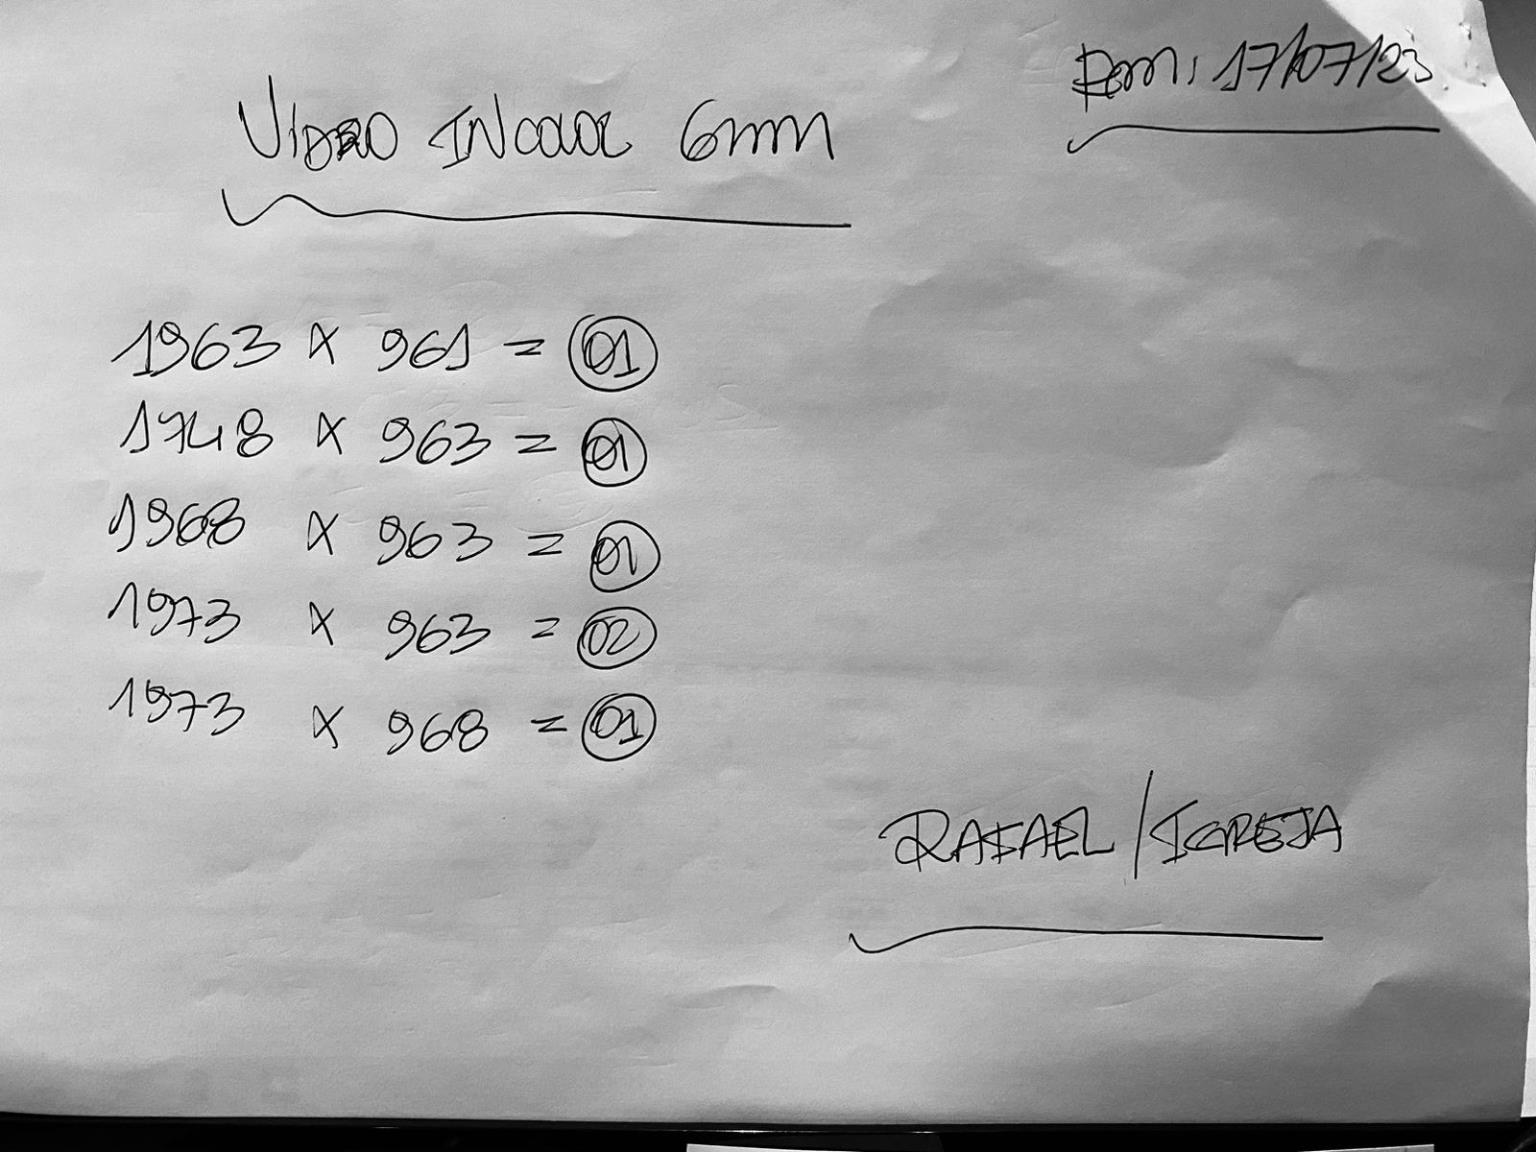 Rom: 17/07/23
VIDRO INCOLOR 6mm
1963 X 961 = 01
1748 X 963 = 01
1968 X 963 = 01
1973 X 963 = 02
1973 X 968 = 01
RAFAEL / IGREJA